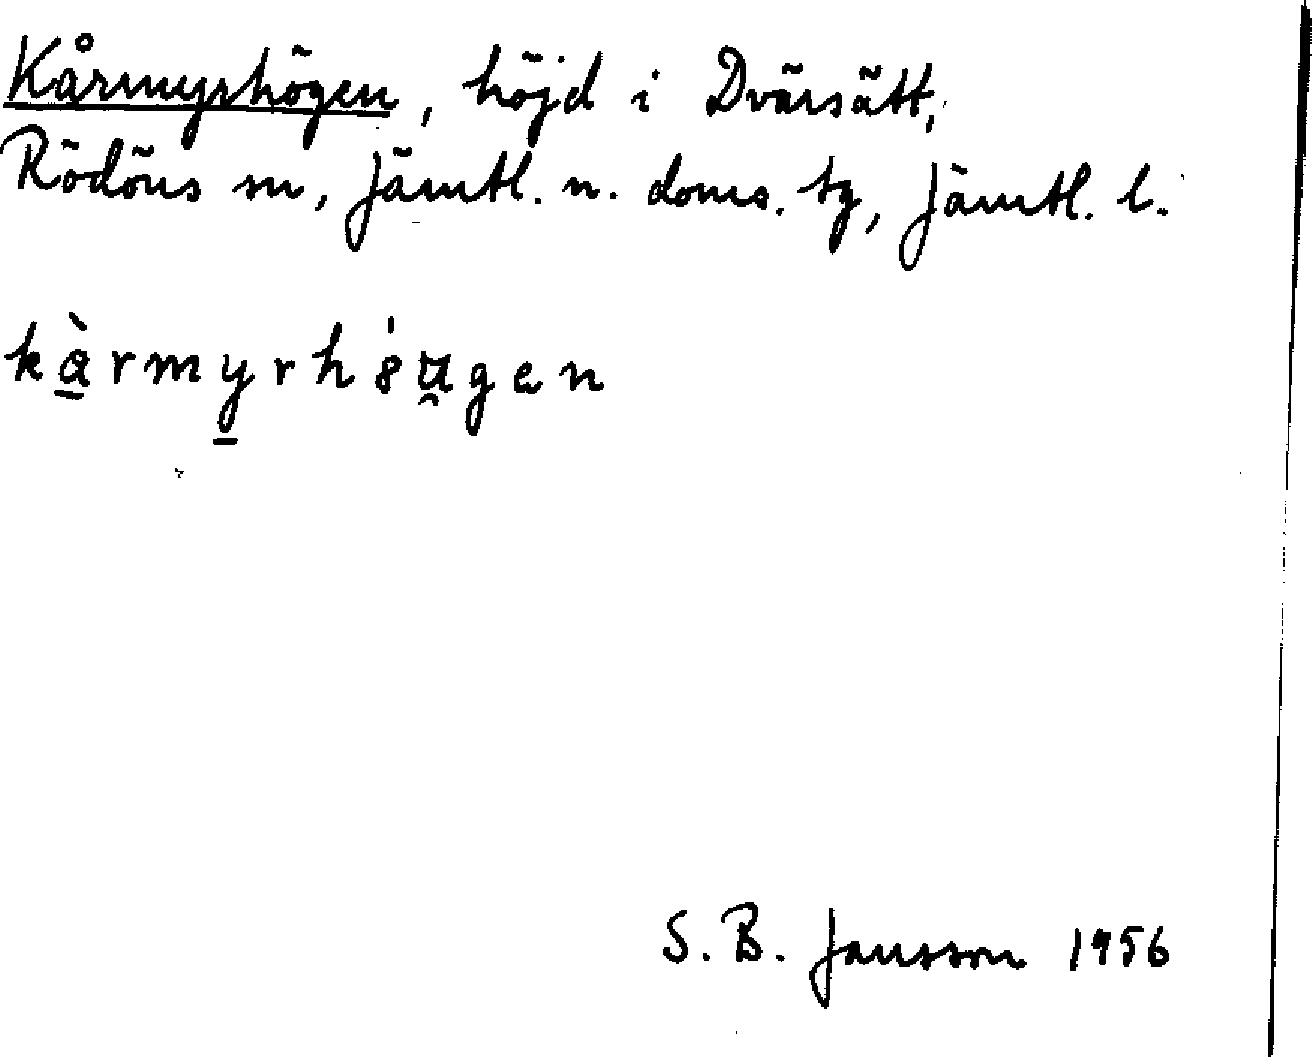 Kårmyrhögen, höjd i Dvärsätt,
Rödöns sn, Jämtl. n. doms. tg, Jämtl. l.
kà̱rmy̱rhó̍u̯gen
S. B. Jansson 1956